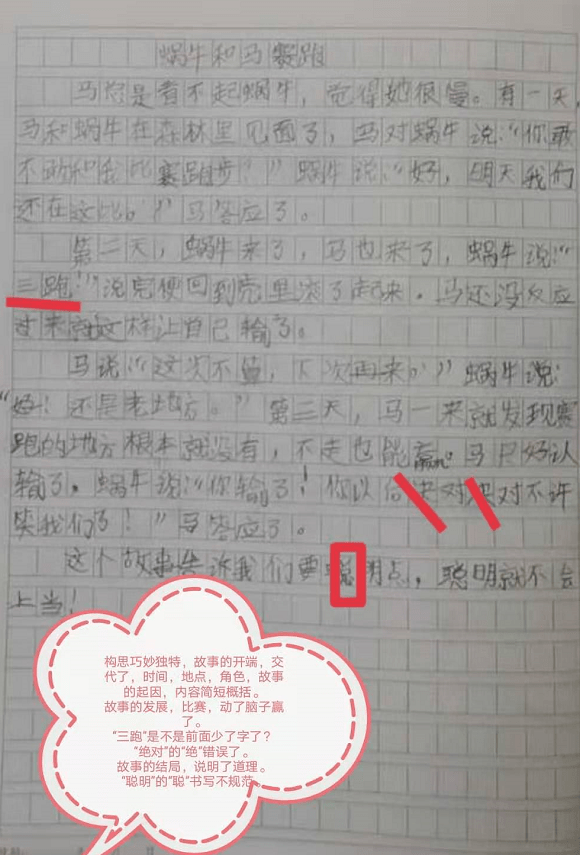 蜗牛和马赛跑
马总是看不起蜗牛，觉得她很慢。有一天，
马和蜗牛在森林里见面了，马对蜗牛说："你敢
不敢和我比赛跑步？"蜗牛说："好，明天我们
还在这比！"马答应了。
第二天，蜗牛来了，马也来了，蜗牛说："
三跑！"说完便回到壳里滚了起来。马还没反应
过来就这样让自己输了。
马说："这次不算，下次再来！"蜗牛说：
"好！还是老地方。"第三天，马一来就发现赛
跑的地方根本就没有，不走也能赢。马只好认
输了。蜗牛说："你输了！你以后决对决对不许
笑我们了！"马答应了。
这个故事告诉我们要聪明点，聪明就不会
上当！
构思巧妙独特，故事的开端，交
代了，时间，地点，角色，故事
的起因，内容简短概括。
故事的发展，比赛，动了脑子赢
了。
"三跑"是不是前面少了字了？
"绝对"的"绝"错误了。
故事的结局，说明了道理。
"聪明"的"聪"书写不规范。